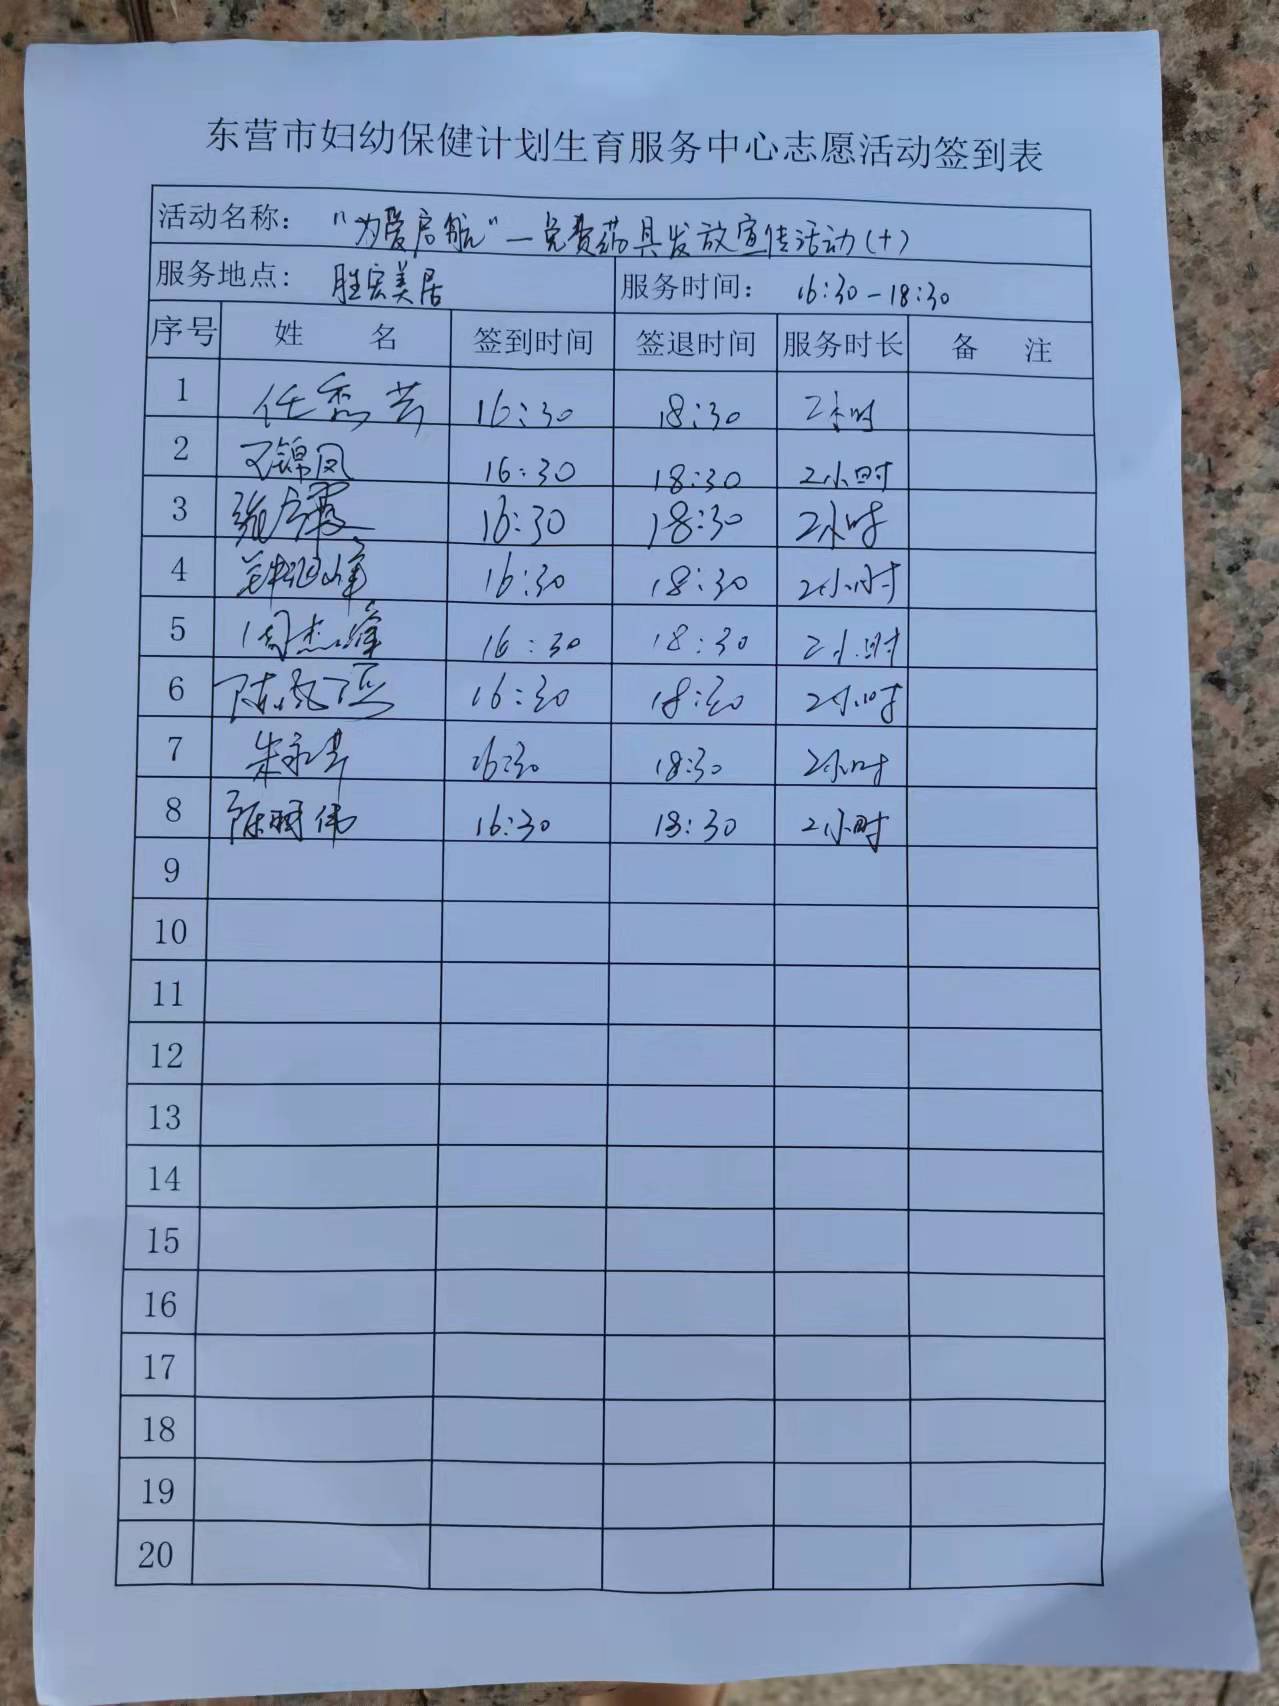 东营市妇幼保健计划生育服务中心志愿活动签到表
活动名称： “为爱启航”—免费药具发放宣传活动(十)
服务地点： 胜宏美居 服务时间： 16:30-18:30
序号 姓 名 签到时间 签退时间 服务时长 备 注
1 任秀芳 16:30 18:30 2小时
2 王锦凤 16:30 18:30 2小时
3 16:30 18:30 2小时
4 16:30 18:30 2小时
5 周杰峰 16:30 18:30 2小时
6 16:30 18:30 2小时
7 16:30 18:30 2小时
8 16:30 18:30 2小时
9
10
11
12
13
14
15
16
17
18
19
20